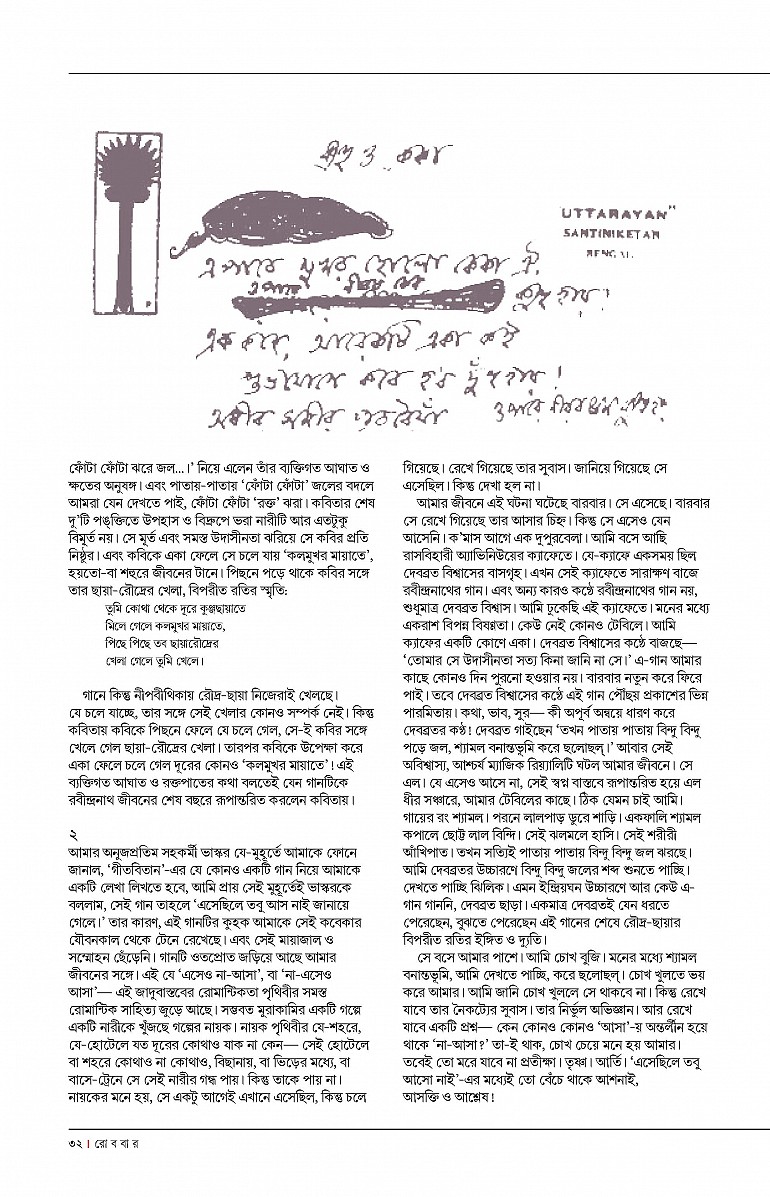 "UTTARAYAN"
SANTINIKETAN
BENGAL.
এপারে মুখর হোলো কেকা ঐ,
ফোঁটা ফোঁটা ঝরে জল...।’ নিয়ে এলেন তাঁর ব্যক্তিগত আঘাত ও
ক্ষতের অনুষঙ্গ। এবং পাতায়-পাতায় ‘ফোঁটা ফোঁটা’ জলের বদলে
আমরা যেন দেখতে পাই, ফোঁটা ফোঁটা ‘রক্ত’ ঝরা। কবিতার শেষ
দু’টি পঙ্‌ক্তিতে উপহাস ও বিদ্রুপে ভরা নারীটি আর এতটুকু
বিমূর্ত নয়। সে মূর্ত এবং সমস্ত উদাসীনতা ঝরিয়ে সে কবির প্রতি
নিষ্ঠুর। এবং কবিকে একা ফেলে সে চলে যায় ‘কলমুখর মায়াতে’,
হয়তো-বা শহুরে জীবনের টানে। পিছনে পড়ে থাকে কবির সঙ্গে
তার ছায়া-রৌদ্রের খেলা, বিপরীত রতির স্মৃতি:
তুমি কোথা থেকে দূরে কুঞ্জছায়াতে
মিলে গেলে কলমুখর মায়াতে,
পিছে পিছে তব ছায়ারৌদ্রের
খেলা গেলে তুমি খেলে।
গানে কিন্তু নীপবীথিকায় রৌদ্র-ছায়া নিজেরাই খেলছে।
যে চলে যাচ্ছে, তার সঙ্গে সেই খেলার কোনও সম্পর্ক নেই। কিন্তু
কবিতায় কবিকে পিছনে ফেলে যে চলে গেল, সে-ই কবির সঙ্গে
খেলে গেল ছায়া-রৌদ্রের খেলা। তারপর কবিকে উপেক্ষা করে
একা ফেলে চলে গেল দূরের কোনও ‘কলমুখর মায়াতে’! এই
ব্যক্তিগত আঘাত ও রক্তপাতের কথা বলতেই যেন গানটিকে
রবীন্দ্রনাথ জীবনের শেষ বছরে রূপান্তরিত করলেন কবিতায়।
২
আমার অনুজপ্রতিম সহকর্মী ভাস্কর যে-মুহূর্তে আমাকে ফোনে
জানাল, ‘গীতবিতান’-এর যে কোনও একটি গান নিয়ে আমাকে
একটি লেখা লিখতে হবে, আমি প্রায় সেই মুহূর্তেই ভাস্করকে
বললাম, সেই গান তাহলে ‘এসেছিলে তবু আস নাই জানায়ে
গেলে।’ তার কারণ, এই গানটির কুহক আমাকে সেই কবেকার
যৌবনকাল থেকে টেনে রেখেছে। এবং সেই মায়াজাল ও
সম্মোহন ছেঁড়েনি। গানটি ওতপ্রোত জড়িয়ে আছে আমার
জীবনের সঙ্গে। এই যে ‘এসেও না-আসা’, বা ‘না-এসেও
আসা’— এই জাদুবাস্তবের রোমান্টিকতা পৃথিবীর সমস্ত
রোমান্টিক সাহিত্য জুড়ে আছে। সম্ভবত মুরাকামির একটি গল্পে
একটি নারীকে খুঁজছে গল্পের নায়ক। নায়ক পৃথিবীর যে-শহরে,
যে-হোটেলে যত দূরের কোথাও যাক না কেন— সেই হোটেলে
বা শহরে কোথাও না কোথাও, বিছানায়, বা ভিড়ের মধ্যে, বা
বাসে-ট্রেনে সে সেই নারীর গন্ধ পায়। কিন্তু তাকে পায় না।
নায়কের মনে হয়, সে একটু আগেই এখানে এসেছিল, কিন্তু চলে
গিয়েছে। রেখে গিয়েছে তার সুবাস। জানিয়ে গিয়েছে সে
এসেছিল। কিন্তু দেখা হল না।
আমার জীবনে এই ঘটনা ঘটেছে বারবার। সে এসেছে। বারবার
সে রেখে গিয়েছে তার আসার চিহ্ন। কিন্তু সে এসেও যেন
আসেনি। ক’মাস আগে এক দুপুরবেলা। আমি বসে আছি
রাসবিহারী অ্যাভিনিউয়ের ক্যাফেতে। যে-ক্যাফে একসময় ছিল
দেবব্রত বিশ্বাসের বাসগৃহ। এখন সেই ক্যাফেতে সারাক্ষণ বাজে
রবীন্দ্রনাথের গান। এবং অন্য কারও কণ্ঠে রবীন্দ্রনাথের গান নয়,
শুধুমাত্র দেবব্রত বিশ্বাস। আমি ঢুকেছি এই ক্যাফেতে। মনের মধ্যে
একরাশ বিপন্ন বিষণ্ণতা। কেউ নেই কোনও টেবিলে। আমি
ক্যাফের একটি কোণে একা। দেবব্রত বিশ্বাসের কণ্ঠে বাজছে—
‘তোমার সে উদাসীনতা সত্য কিনা জানি না সে।’ এ-গান আমার
কাছে কোনও দিন পুরনো হওয়ার নয়। বারবার নতুন করে ফিরে
পাই। তবে দেবব্রত বিশ্বাসের কণ্ঠে এই গান পৌঁছয় প্রকাশের ভিন্ন
পারমিতায়। কথা, ভাব, সুর— কী অপূর্ব অন্বয়ে ধারণ করে
দেবব্রতর কণ্ঠ! দেবব্রত গাইছেন ‘তখন পাতায় পাতায় বিন্দু বিন্দু
পড়ে জল, শ্যামল বনান্তভূমি করে ছলোছল্‌।’ আবার সেই
অবিশ্বাস্য, আশ্চর্য ম্যাজিক রিয়্যালিটি ঘটল আমার জীবনে। সে
এল। যে এসেও আসে না, সেই স্বপ্ন বাস্তবে রূপান্তরিত হয়ে এল
ধীর সঞ্চারে, আমার টেবিলের কাছে। ঠিক যেমন চাই আমি।
গায়ের রং শ্যামল। পরনে লালপাড় ডুরে শাড়ি। একফালি শ্যামল
কপালে ছোট্ট লাল বিন্দি। সেই ঝলমলে হাসি। সেই শরীরী
আঁখিপাত। তখন সত্যিই পাতায় পাতায় বিন্দু বিন্দু জল ঝরছে।
আমি দেবব্রতর উচ্চারণে বিন্দু বিন্দু জলের শব্দ শুনতে পাচ্ছি।
দেখতে পাচ্ছি ঝিলিক। এমন ইন্দ্রিয়ঘন উচ্চারণে আর কেউ এ-
গান গাননি, দেবব্রত ছাড়া। একমাত্র দেবব্রতই যেন ধরতে
পেরেছেন, বুঝতে পেরেছেন এই গানের শেষে রৌদ্র-ছায়ার
বিপরীত রতির ইঙ্গিত ও দ্যুতি।
সে বসে আমার পাশে। আমি চোখ বুজি। মনের মধ্যে শ্যামল
বনান্তভূমি, আমি দেখতে পাচ্ছি, করে ছলোছল্‌। চোখ খুলতে ভয়
করে আমার। আমি জানি চোখ খুললে সে থাকবে না। কিন্তু রেখে
যাবে তার নৈকট্যের সুবাস। তার নির্ভুল অভিজ্ঞান। আর রেখে
যাবে একটি প্রশ্ন— কেন কোনও কোনও ‘আসা’-য় অন্তর্লীন হয়ে
থাকে ‘না-আসা?’ তা-ই থাক, চোখ চেয়ে মনে হয় আমার।
তবেই তো মরে যাবে না প্রতীক্ষা। তৃষ্ণা। আর্তি। ‘এসেছিলে তবু
আসো নাই’-এর মধ্যেই তো বেঁচে থাকে আশনাই,
আসক্তি ও আশ্লেষ!
৩২ । রো ব বা র